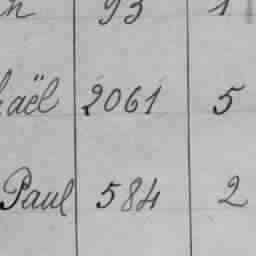 93 1
aël 2061 5
Paul 584 2